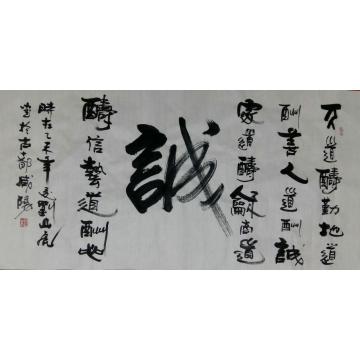 天道醻勤地道
酬善人道酬誠
處道醻龢商道
誠
醻信藝道酬
時在乙未年
書於古都咸陽